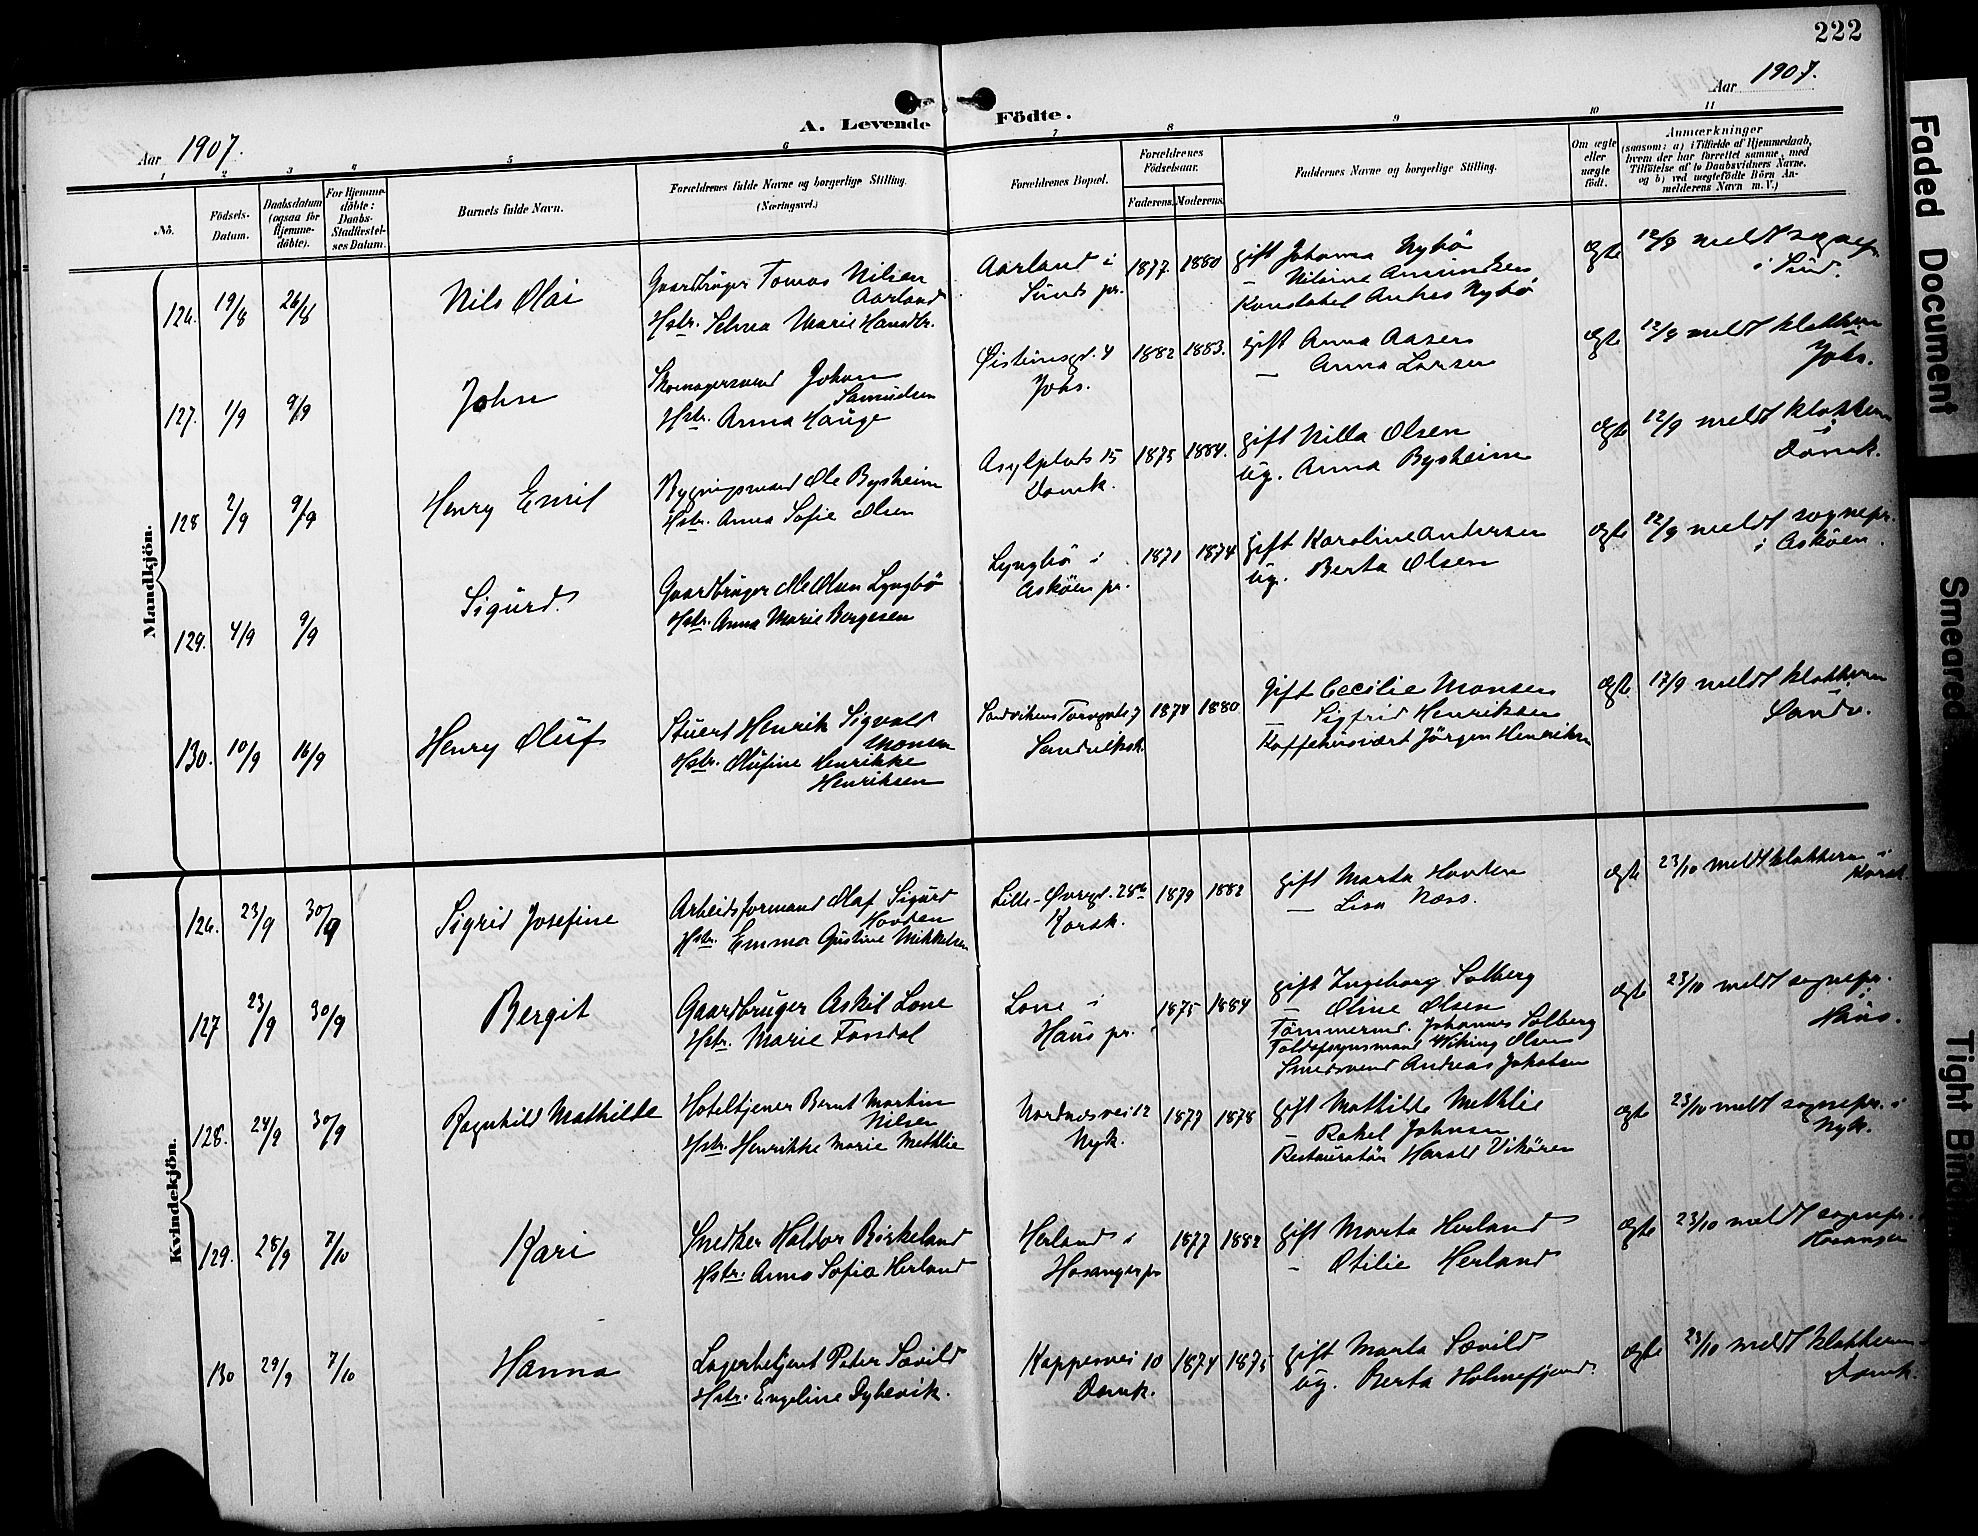 222
Aar 1907.
Aar 1907.
A. Levende Födte.
1 2 3 4 5 6 7 8 9 10 11
No.
Födsels-Datum.
Daabsdatum (ogsaa for Hjemme-döbte).
For Hjemme-döbte: Daabs-Stadfæstel-ses Datum.
Barnets fulde Navn.
Forældrenes fulde Navne og borgerlige Stilling.
(Næringsvei.)
Forældrenes Bopæl.
Forældrenes Födselsaar.
Faderens. Moderens.
Faddernes Navne og borgerlige Stilling.
Om ægte eller uægte födt.
Anmærkninger
(saasom: a) i Tilfælde af Hjemmedaab,
hvem der har forrettet samme, med
Tilföielse af to Daabsvidners Navne,
og b) ved uægtefödte Börn An-
melderens Navn m. V.)
Mandkjön.
126. 19/8 26/8 Nils Olai
Gaardbruger Tomas Nilsen
Aarland
Hstr. Selma Marie Handbr.
Aarland i
Sunds pr.
1877 1880
gift Johanna Nybö
— Nilsine Amundsen
Konstabel Andreas Nybö
ægte
12/9 meldt sognepr.
i Sund.
127. 1/9 9/9 John
Skomagersvend Johan
Samuelsen
Hstr. Anna Hauge
Øistensgd. 4
Johs.
1882 1883.
gift Anna Aasen
— Anna Larsen
ægte
12/9 meldt klokkeren
Johs.
128 2/9 9/9 Henry Emil
Bygningsmand Ole Bysheim
Hstr. Anna Sofie Olsen
Asylplads 15
Domk.
1875 1884.
gift Nilla Olsen
ug. Anna Bysheim
ægte
12/9 meldt klokkeren
i
Domk.
129. 4/9 9/9 Sigurd
Gaardbruger Ole Olsen Lyngbö
Hstr. Anna Marie Børgesen
Lyngbö i
Asköen pr.
1871 1874
gift Karoline Andersen
ug. Berta Olsen
ægte
12/9 meldt sognepr.
i Asköen.
130. 10/9 16/9 Henry Oluf
Stuert Henrik Sigvald
Monsen
Hstr. Olufine Henrikke
Henriksen
Sandvikens Torvgade 7
Sandviksk.
1874 1880
gift Cecilie Monsen
— Sigfrid Henriksen
Kaffehusvært Jörgen Henriksen
ægte
17/9 meldt klokkeren
Sandv.
Kvindekjön.
126. 23/9 30/9 Sigrid Josefine
Arbeidsformand Olaf Sigurd
Hovden
Hstr. Emma Gustine Mikkelsen
Lille-Øvregd. 28b
Korsk.
1879 1882
gift Marta Hovden
— Lisa Næss.
ægte
23/10 meldt klokkeren i
Korsk.
127 23/9 30/9 Bergit
Gaardbruger Askil Lone
Hstr. Marie Fosdal
Lone i
Haus pr.
1875 1884
gift Ingeborg Solberg
— Oline Olsen
Tömmermd. Johannes Solberg
Toldopsynsmand Viking Olsen
Smedsvend Andreas Jakobsen
ægte
23/10 meldt sognepr.
i
Haus.
128. 24/9 30/9 Ragnhild Mathilde
Hoteltjener Bernt Martin
Nilsen
Hstr. Henrikke Marie Methlie
Nordnæsvei 12
Nyk.
1877 1878
gift Mathilde Methlie
— Rakel Johnsen
Restauratör Harald Vikören
ægte
23/10 meldt sognepr. i
Nyk.
129. 28/9 7/10 Kari
Snedker Haldor Birkeland
Hstr. Anna Sofia Herland
Herland i
Hosanger pr
1877 1882
gift Marta Herland
— Otilie Herland
ægte
23/10 meldt sognepr.
Hosanger
130 29/9 7/10 Hanna
Lagerbetjent Peter Sævild
Hstr. Engeline Dybevik.
Kappesvei 10
Domk.
1874 1875
gift Marta Sævild
ug. Berta Holmefjord.
ægte
23/10 meldt klokkeren
Domk.
Faded Document
Smeared
Tight Bin